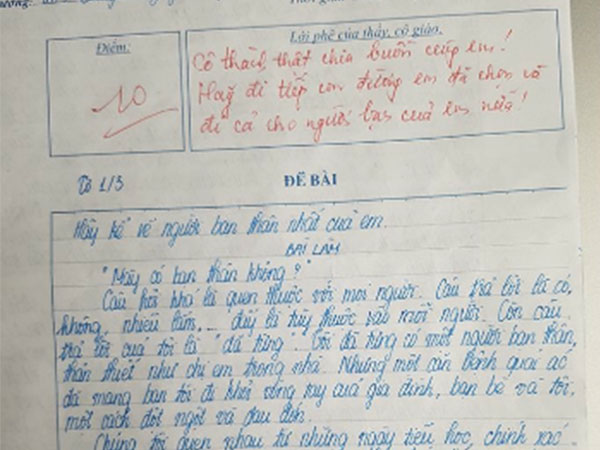 Điểm:
Lời phê của thầy, cô giáo.
10
Cô thành thật chia buồn cùng em!
Hãy đi tiếp con đường em đã chọn và
đi cả cho người bạn của em nữa!
Tổ 1/3
ĐỀ BÀI
Hãy kể về người bạn thân nhất của em.
BÀI LÀM
"Mày có bạn thân không?"
Câu hỏi khá là quen thuộc với mọi người. Câu trả lời là có,
không, nhiều lắm,... đấy là tùy thuộc vào mỗi người. Còn câu
trả lời của tôi là "đã từng". Tôi đã từng có một người bạn thân,
thân thiết như chị em trong nhà. Nhưng một căn bệnh quái ác
đã mang bạn tôi đi khỏi vòng tay của gia đình, bạn bè và tôi,
một cách đột ngột và đau đớn.
Chúng tôi quen nhau từ những ngày tiểu học, chính xác